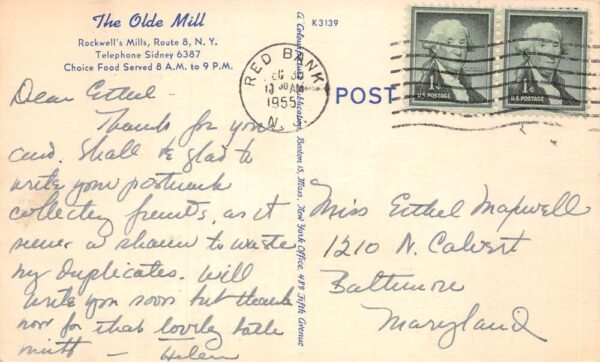 The Olde Mill
Rockwell's Mills, Route 8, N. Y.
Telephone Sidney 6387
Choice Food Served 8 A.M. to 9 P.M.
Dear Ethel -
Thanks for your
card. Shall be glad to
write your postmark
collecting friends, as it
seems a shame to waste
my duplicates. Will
write you soon but thanks
now for that lovely bath
mitt - Helen
A Colourpicture Publication, Boston 15, Mass., New York Office, 489 Fifth Avenue
K3139
RED BANK
1955
N.
POST
1¢
U.S. POSTAGE
1¢
U.S. POSTAGE
Miss Ethel Maxwell
1210 N. Calvert
Baltimore
Maryland